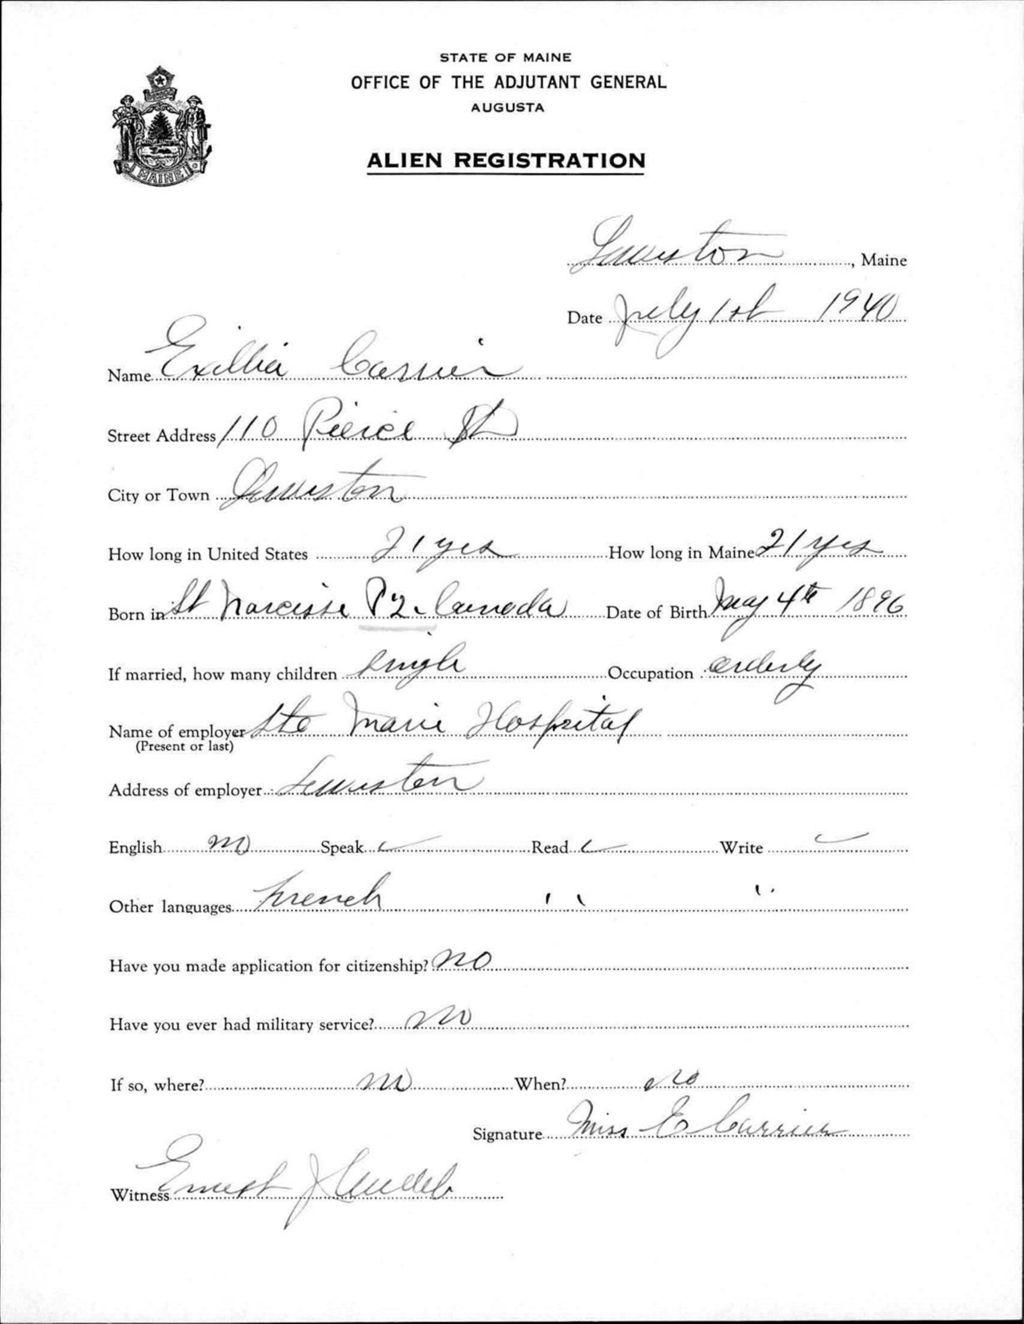 STATE OF MAINE
OFFICE OF THE ADJUTANT GENERAL
AUGUSTA
ALIEN REGISTRATION
MAINE
Lewiston, Maine
Date July 1st 1940
Name Exillia Carrier
Street Address 110 Pierce St
City or Town Lewiston
How long in United States 21 yrs How long in Maine 21 yrs
Born in St Narcisse P2. Canada Date of Birth May 4th 1896
If married, how many children single Occupation orderly
Name of employer Ste Marie Hospital
(Present or last)
Address of employer Lewiston
English no Speak ✓ Read ✓ Write ✓
Other languages French " "
Have you made application for citizenship? no
Have you ever had military service? no
If so, where? no When? no
Signature Miss E Carrier
Witness Ernest J